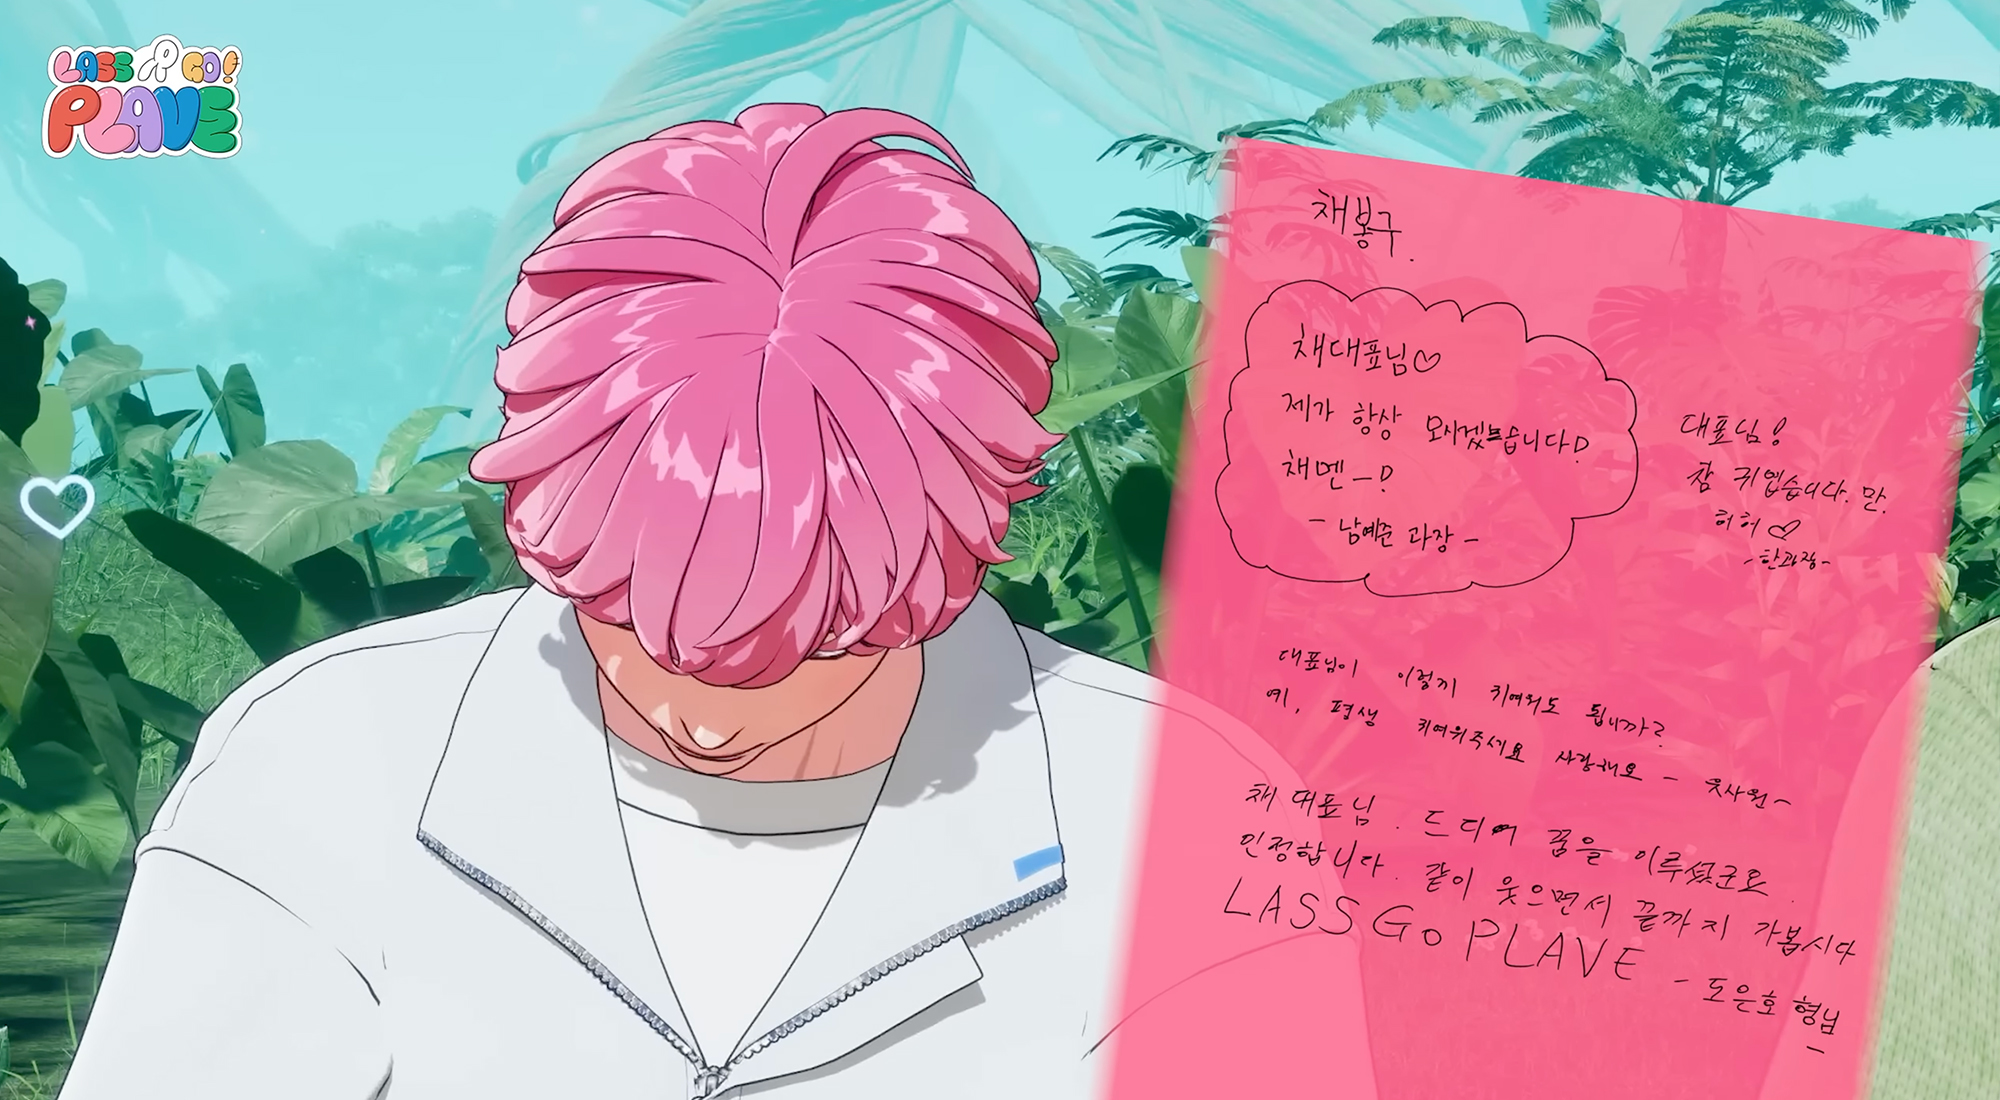 LASS GO!
PLAVE
채봉구.
채대표님♡
제가 항상 모시겠습니다!
채멘-!
- 남예준 과장 -
대표님!
참 귀엽습니다. 만.
허허♡
- 한과장 -
대표님이 이렇게 귀여워도 됩니까?
예, 평생 귀여워주세요 사랑해요 - 웃사원 -
채 대표님. 드디어 꿈을 이루셨군요.
인정합니다. 같이 웃으면서 끝까지 가봅시다
LASS Go PLAVE - 도은호 형님 -